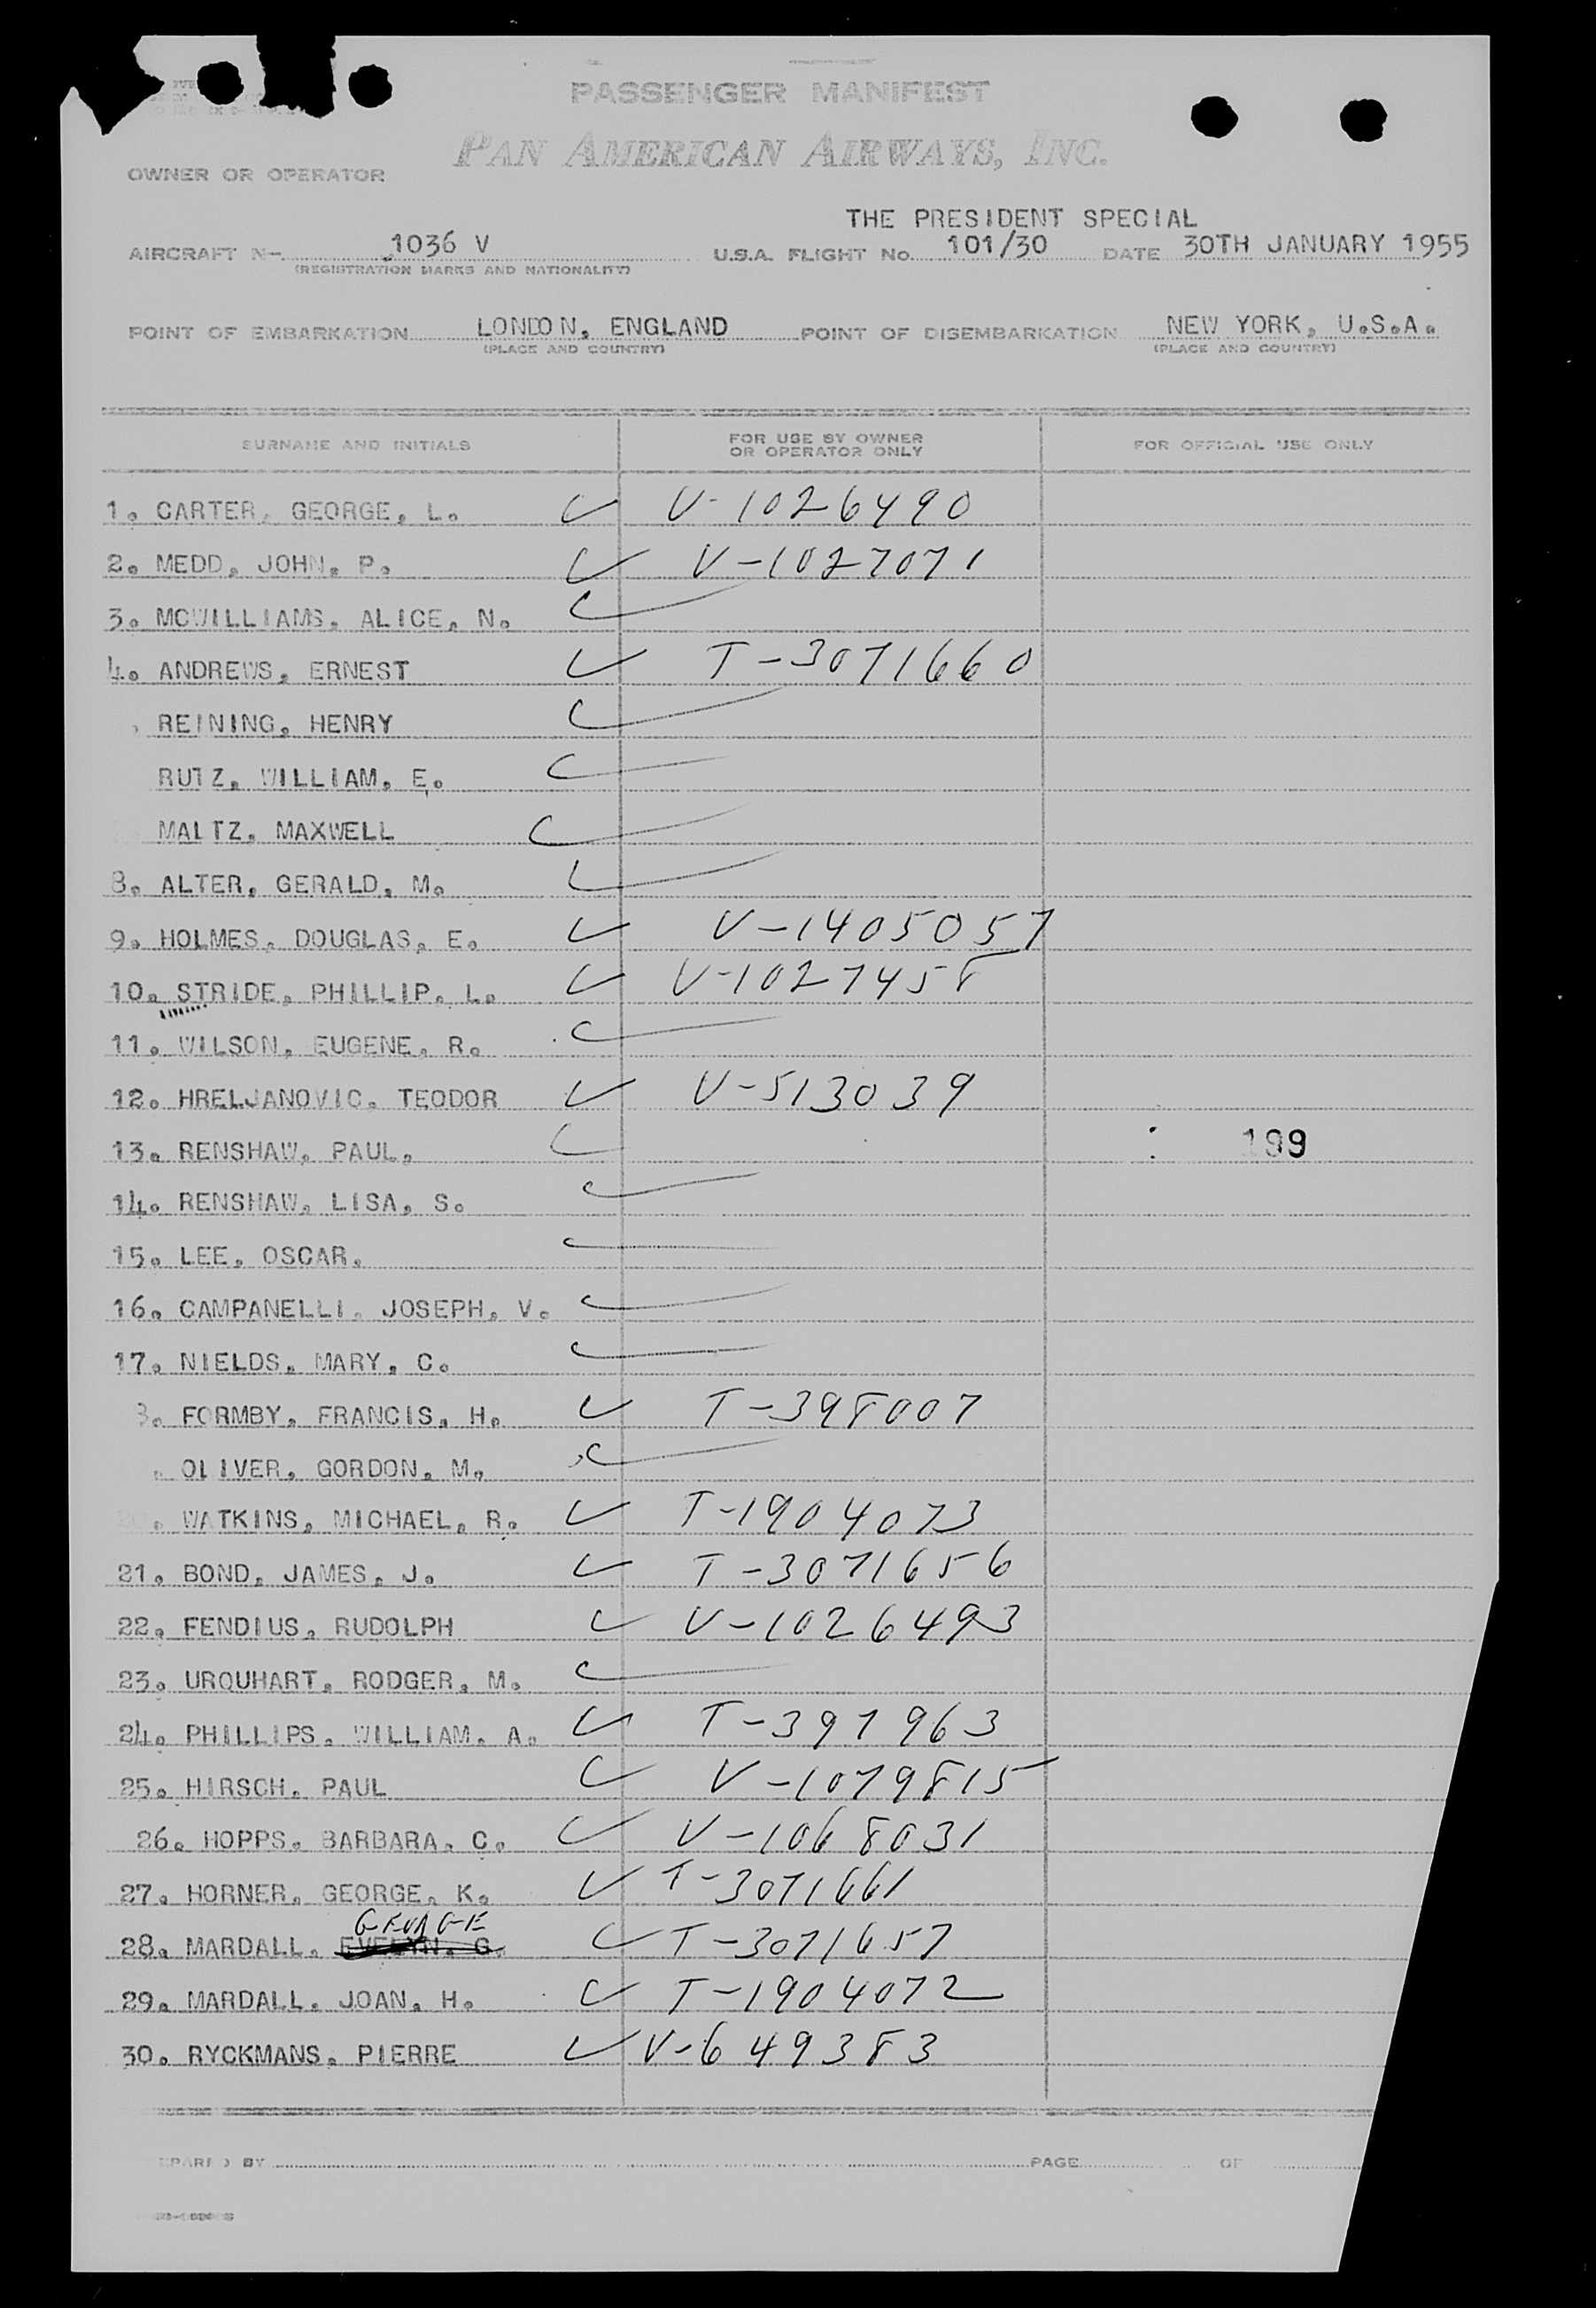 PASSENGER MANIFEST
PAN AMERICAN AIRWAYS, INC.
OWNER OR OPERATOR
THE PRESIDENT SPECIAL
AIRCRAFT N 1036 V U.S.A. FLIGHT No. 101/30 DATE 30TH JANUARY 1955
(REGISTRATION MARKS AND NATIONALITY)
POINT OF EMBARKATION LONDON, ENGLAND POINT OF DISEMBARKATION NEW YORK, U.S.A.
(PLACE AND COUNTRY) (PLACE AND COUNTRY)
SURNAME AND INITIALS FOR USE BY OWNER OR OPERATOR ONLY FOR OFFICIAL USE ONLY
1. CARTER, GEORGE, L. V-1026490
2. MEDD, JOHN, P. V-1027071
3. MCWILLIAMS, ALICE, N.
4. ANDREWS, ERNEST T-3071660
REINING, HENRY
RUTZ, WILLIAM, E.
MALTZ, MAXWELL
8. ALTER, GERALD, M.
9. HOLMES, DOUGLAS, E. V-1405057
10. STRIDE, PHILLIP, L. V-1027458
11. WILSON, EUGENE, R.
12. HRELJANOVIC, TEODOR V-513039
13. RENSHAW, PAUL, 199
14. RENSHAW, LISA, S.
15. LEE, OSCAR.
16. CAMPANELLI, JOSEPH, V.
17. NIELDS, MARY, C.
8. FORMBY, FRANCIS, H. T-398007
. OLIVER, GORDON, M.
. WATKINS, MICHAEL, R. T-1904073
21. BOND, JAMES, J. T-3071656
22. FENDIUS, RUDOLPH V-1026493
23. URQUHART, RODGER, M.
24. PHILLIPS, WILLIAM, A. T-397963
25. HIRSCH, PAUL V-1079815
26. HOPPS, BARBARA, C. V-1068031
27. HORNER, GEORGE, K. T-3071661
GEORGE
28. MARDALL, EVELYN, G. T-3071657
29. MARDALL, JOAN, H. T-1904072
30. RYCKMANS, PIERRE V-649383
PAGE OF